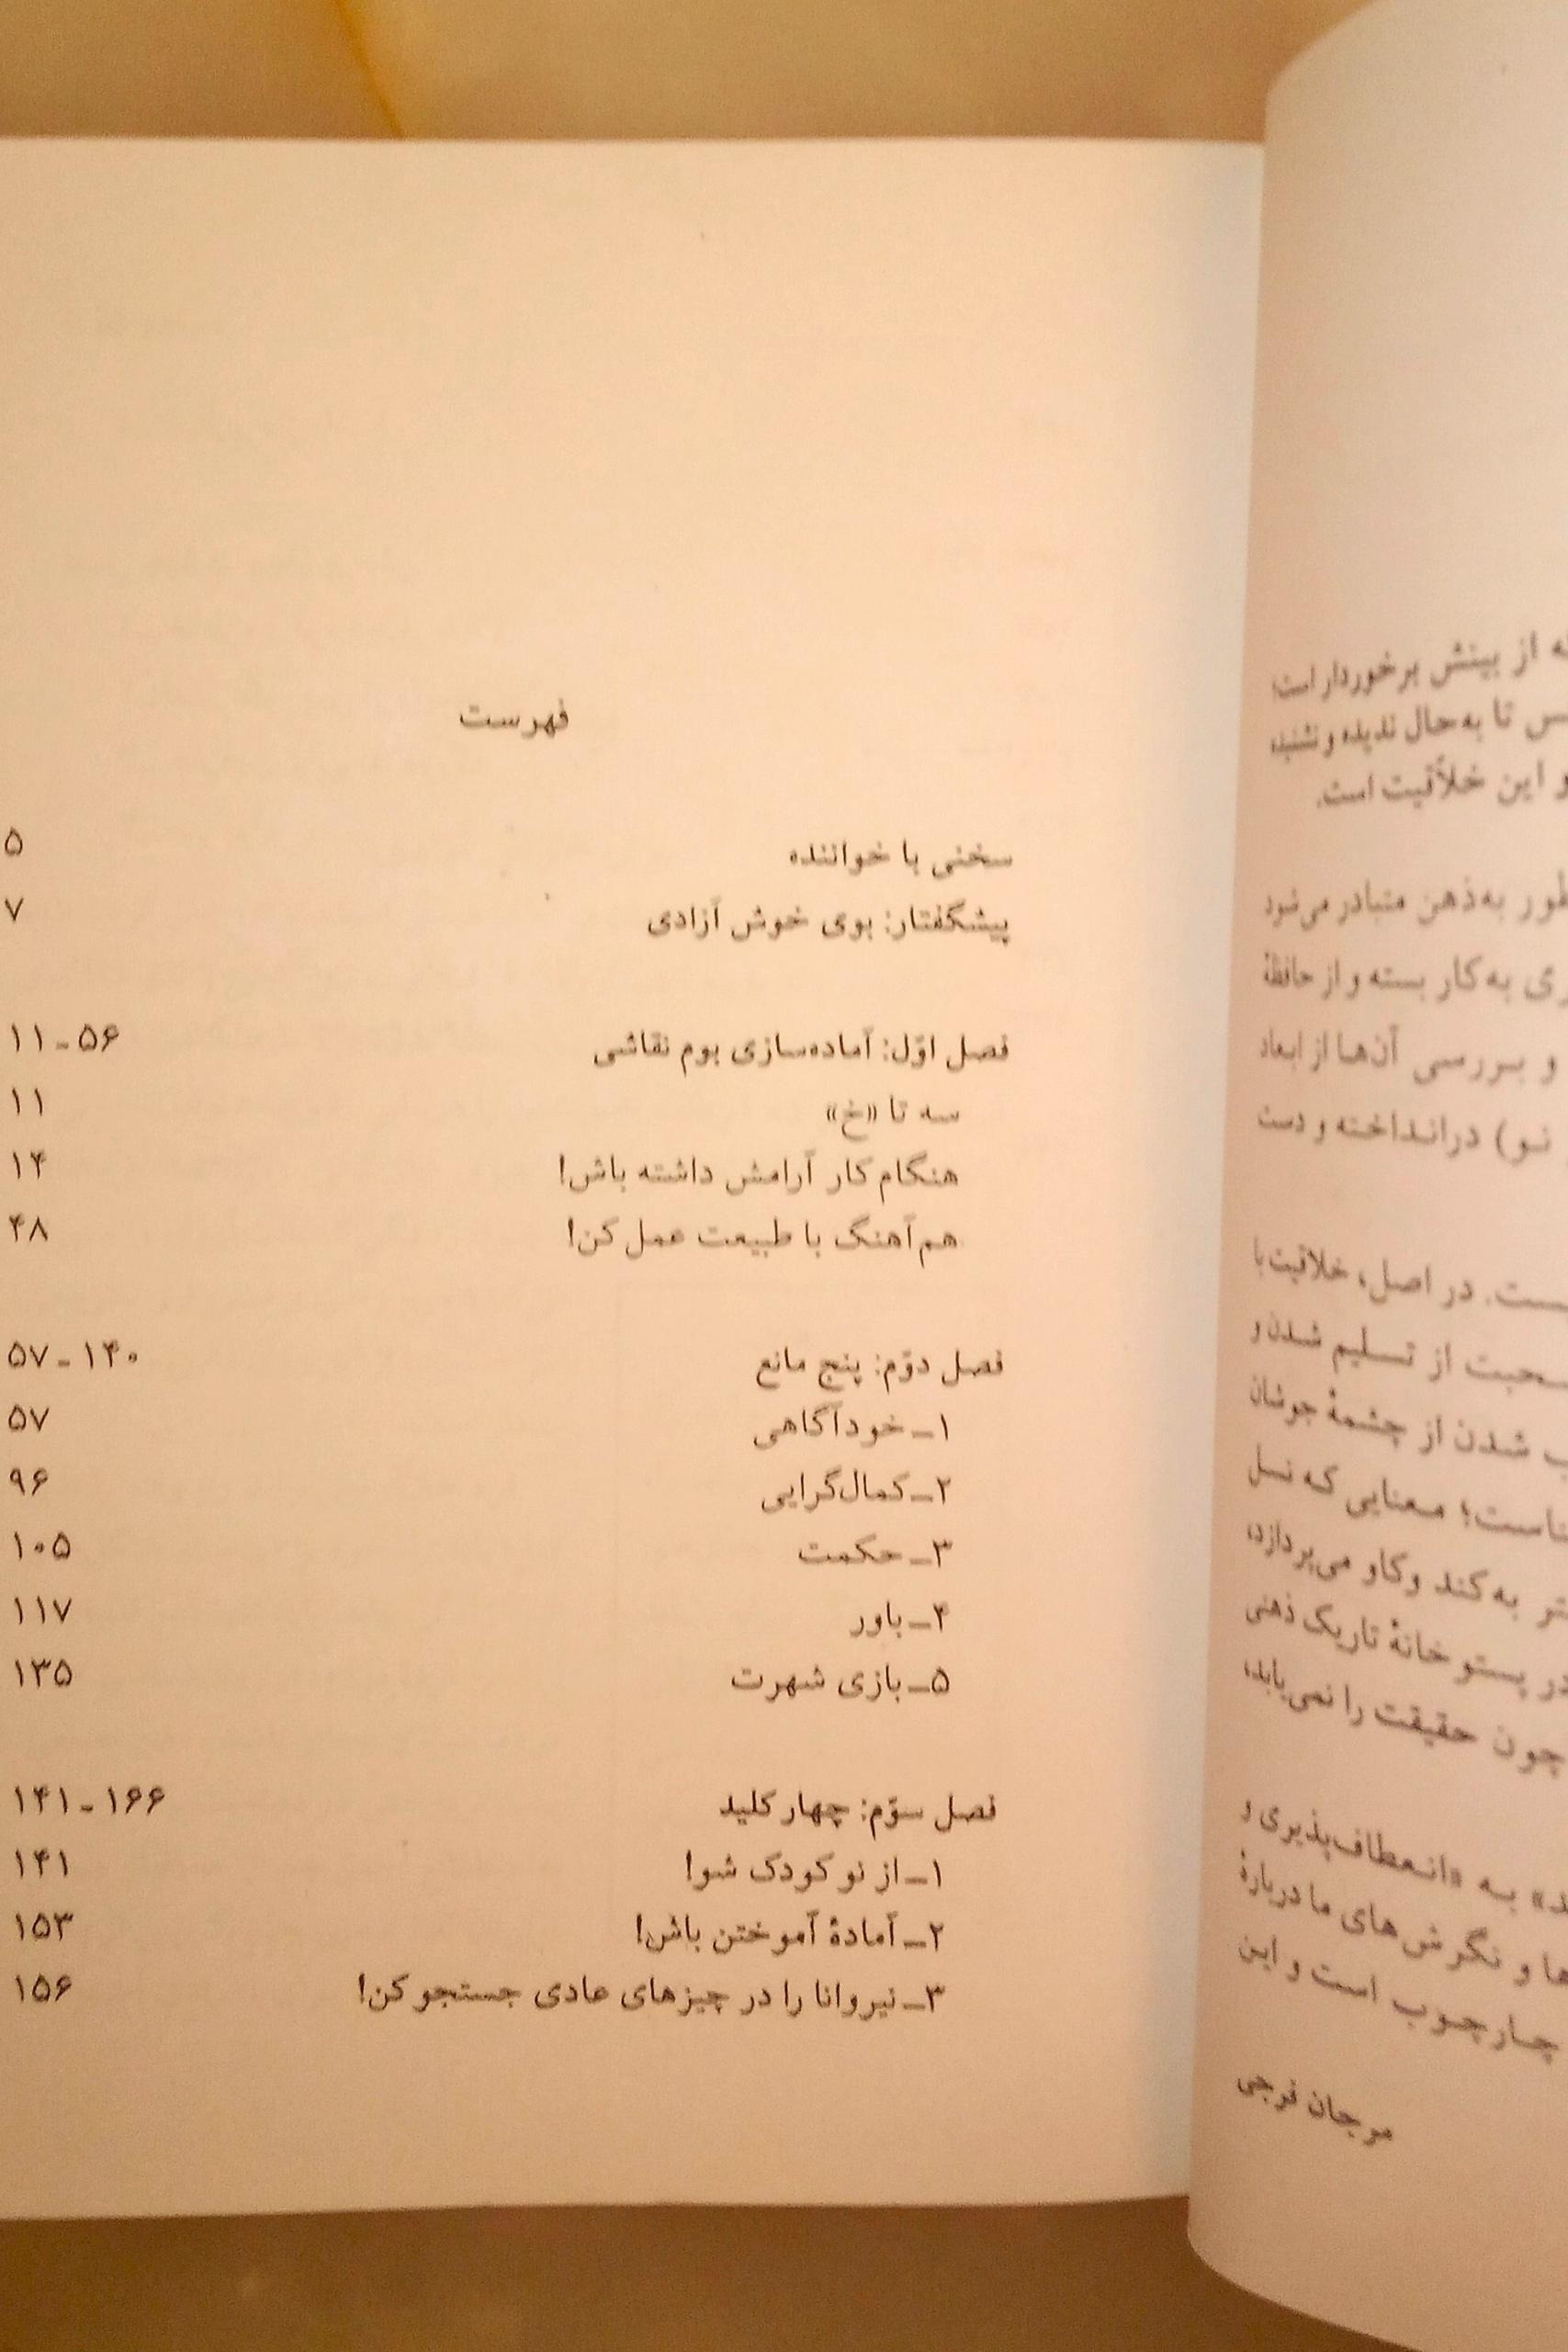 از بینش برخوردار است
تا به‌حال ندیده و نشنیده
و این خلاّقیت است.
به‌ذهن متبادر می‌شود
به‌کار بسته و از حافظهٔ
و بررسی آن‌ها از ابعاد
نو) درانداخته و دست
در اصل، خلاقیت با
از تسلیم شدن و
شدن از چشمهٔ جوشان
معنایی که نسل
به کند و کاو می‌پردازد،
در پستو خانهٔ تاریک ذهنی
چون حقیقت را نمی‌یابد،
به «انعطاف‌پذیری و
و نگرش‌های ما دربارهٔ
چارچوب است و این
مرجان فرجی
فهرست
سخنی با خواننده ۵
پیشگفتار: بوی خوش آزادی ۷
فصل اوّل: آماده‌سازی بوم نقاشی ۱۱-۵۶
سه تا «خ» ۱۱
هنگام کار آرامش داشته باش! ۱۴
هم‌آهنگ با طبیعت عمل کن! ۴۸
فصل دوّم: پنج مانع ۵۷-۱۴۰
۱-خودآگاهی ۵۷
۲-کمال‌گرایی ۹۶
۳-حکمت ۱۰۵
۴-باور ۱۱۷
۵-بازی شهرت ۱۳۵
فصل سوّم: چهار کلید ۱۴۱-۱۶۶
۱-از نو کودک شو! ۱۴۱
۲-آمادهٔ آموختن باش! ۱۵۳
۳-نیروانا را در چیزهای عادی جستجو کن! ۱۵۶